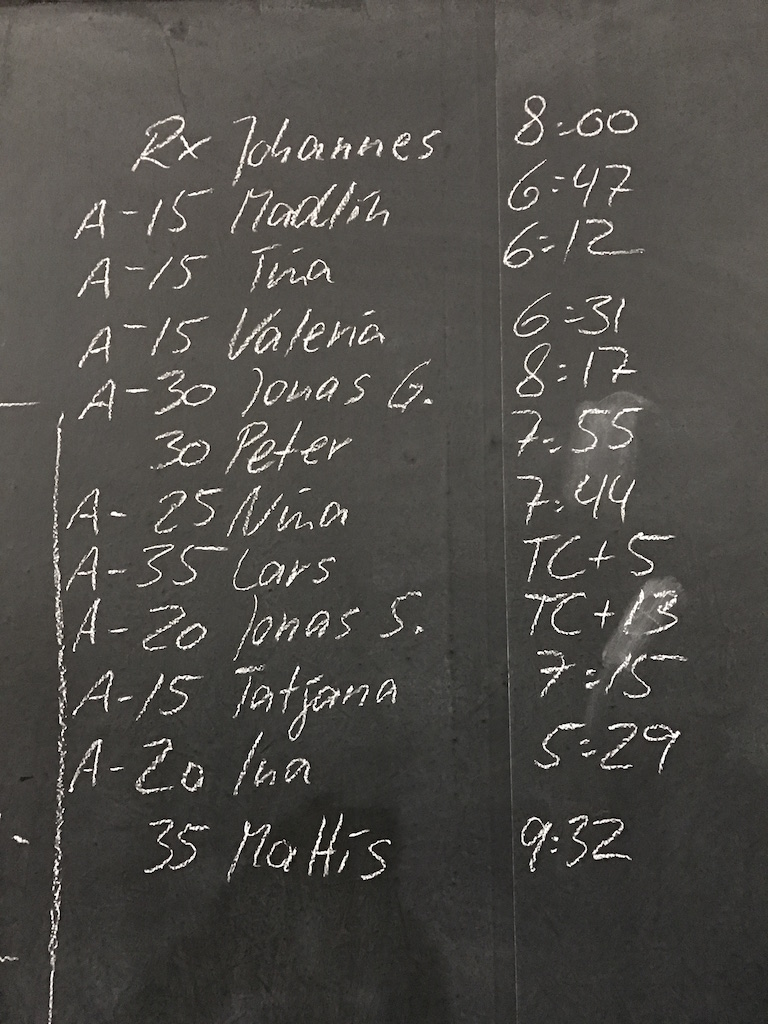 Rx Johannes 8:00
A-15 Madlin 6:47
A-15 Tina 6:12
A-15 Valeria 6:31
A-30 Jonas G. 8:17
30 Peter 7:55
A-25 Nina 7:44
A-35 Lars TC+5
A-20 Jonas S. TC+13
A-15 Tatjana 7:15
A-20 Ina 5:29
35 Mattis 9:32